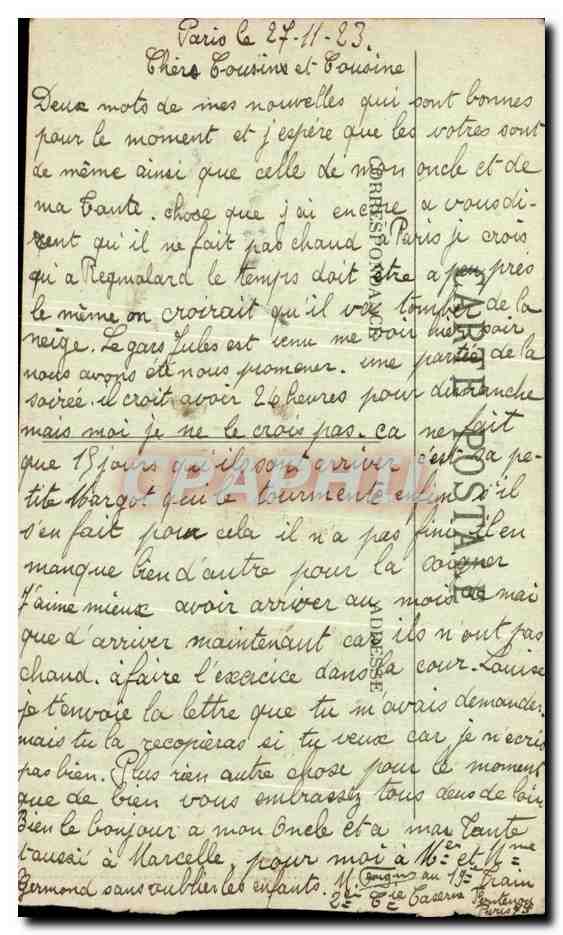 Paris le 27-11-23.
Chers Cousins et Cousine
Deux mots de mes nouvelles qui sont bonnes
pour le moment et j'espére que les votres sont
de même ainsi que celle de mon oncle et de
ma Tante. chose que j'ai encore a vous di-
rent qu'il ne fait pas chaud à Paris je crois
qu'a Regmalard le temps doit être a peu près
le même on croirait qu'il va tomber de la
neige. Le gars Jules est venu me voir hier soir
nous avons été nous promener. une partie de la
soirée. il croit avoir 24 heures pour dimanche
mais moi je ne le crois pas. ca ne fait
que 15 jours qu'ils sont arriver c'est sa pe-
tite Margot qui le tourmente enfin s'il
s'en fait pour cela il n'a pas fini il en
manque bien d'autre pour la soigner
J'aime mieux avoir arriver au mois de mai
que d'arriver maintenant car ils n'ont pas
chaud. à faire l'exercice dans la cour. Louise
je t'envoie la lettre que tu m'avais demander.
mais tu la recopieras si tu veux car je n'ecris
pas bien. Plus rien autre chose pour le moment
que de bien vous embrassez tous deus de loin
Bien le bonjour a mon Oncle et a ma Tante
t'aussi à Marcelle, pour moi à Mer et Mme
Germond sans oublier les enfants. M. au 19e Train
2e Cie Caserne
Paris
CARTE POSTALE
CORRESPONDANCE
ADRESSE
CPAPHIL